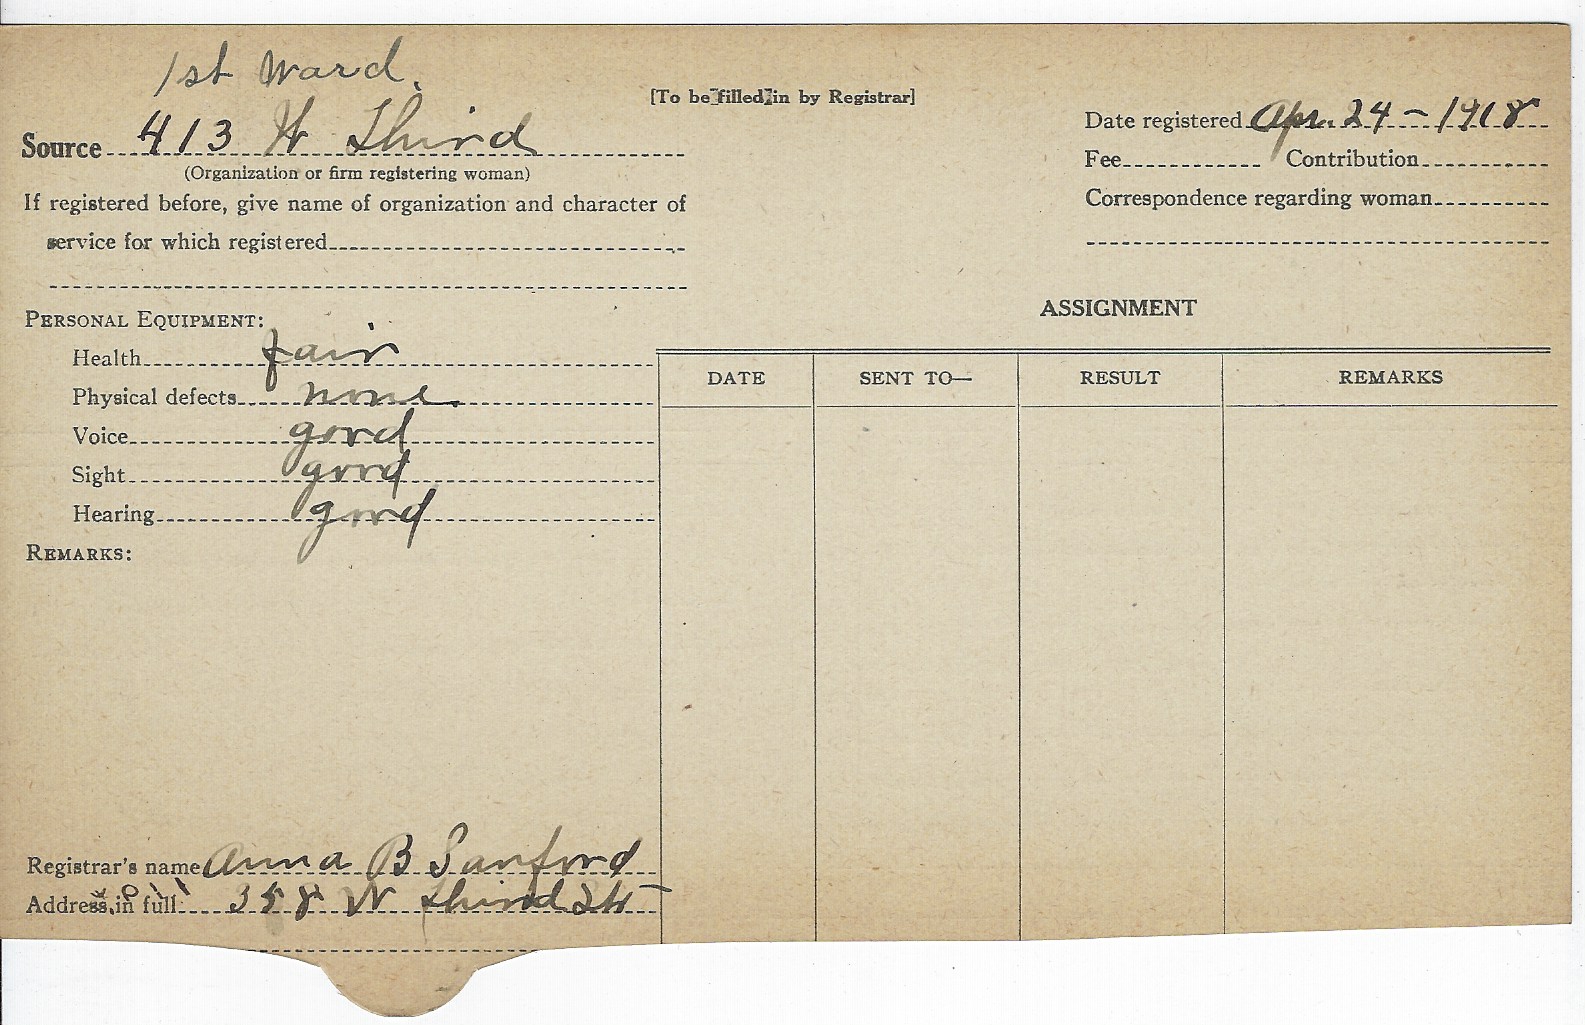 1st Ward.
[To be filled in by Registrar]
Source 413 W Third
(Organization or firm registering woman)
If registered before, give name of organization and character of
service for which registered
Date registered Apr. 24 - 1918
Fee Contribution
Correspondence regarding woman
PERSONAL EQUIPMENT:
Health fair
Physical defects none
Voice good
Sight good
Hearing good
REMARKS:
ASSIGNMENT
DATE SENT TO— RESULT REMARKS
Registrar's name Anna B Sanford
Address in full 358 W Third St